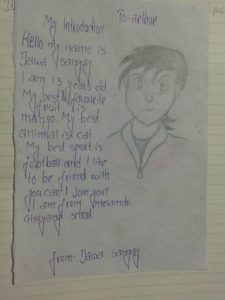 My Introduction
To-arthur
Hello my name is
Dawa sangay
I am 13 years old.
My best favourite
fruit is
mango. My best
animal is cat.
My best sport is
football and I like
to be friend with
you can I join you?
I am from
school
from Dawa sangay